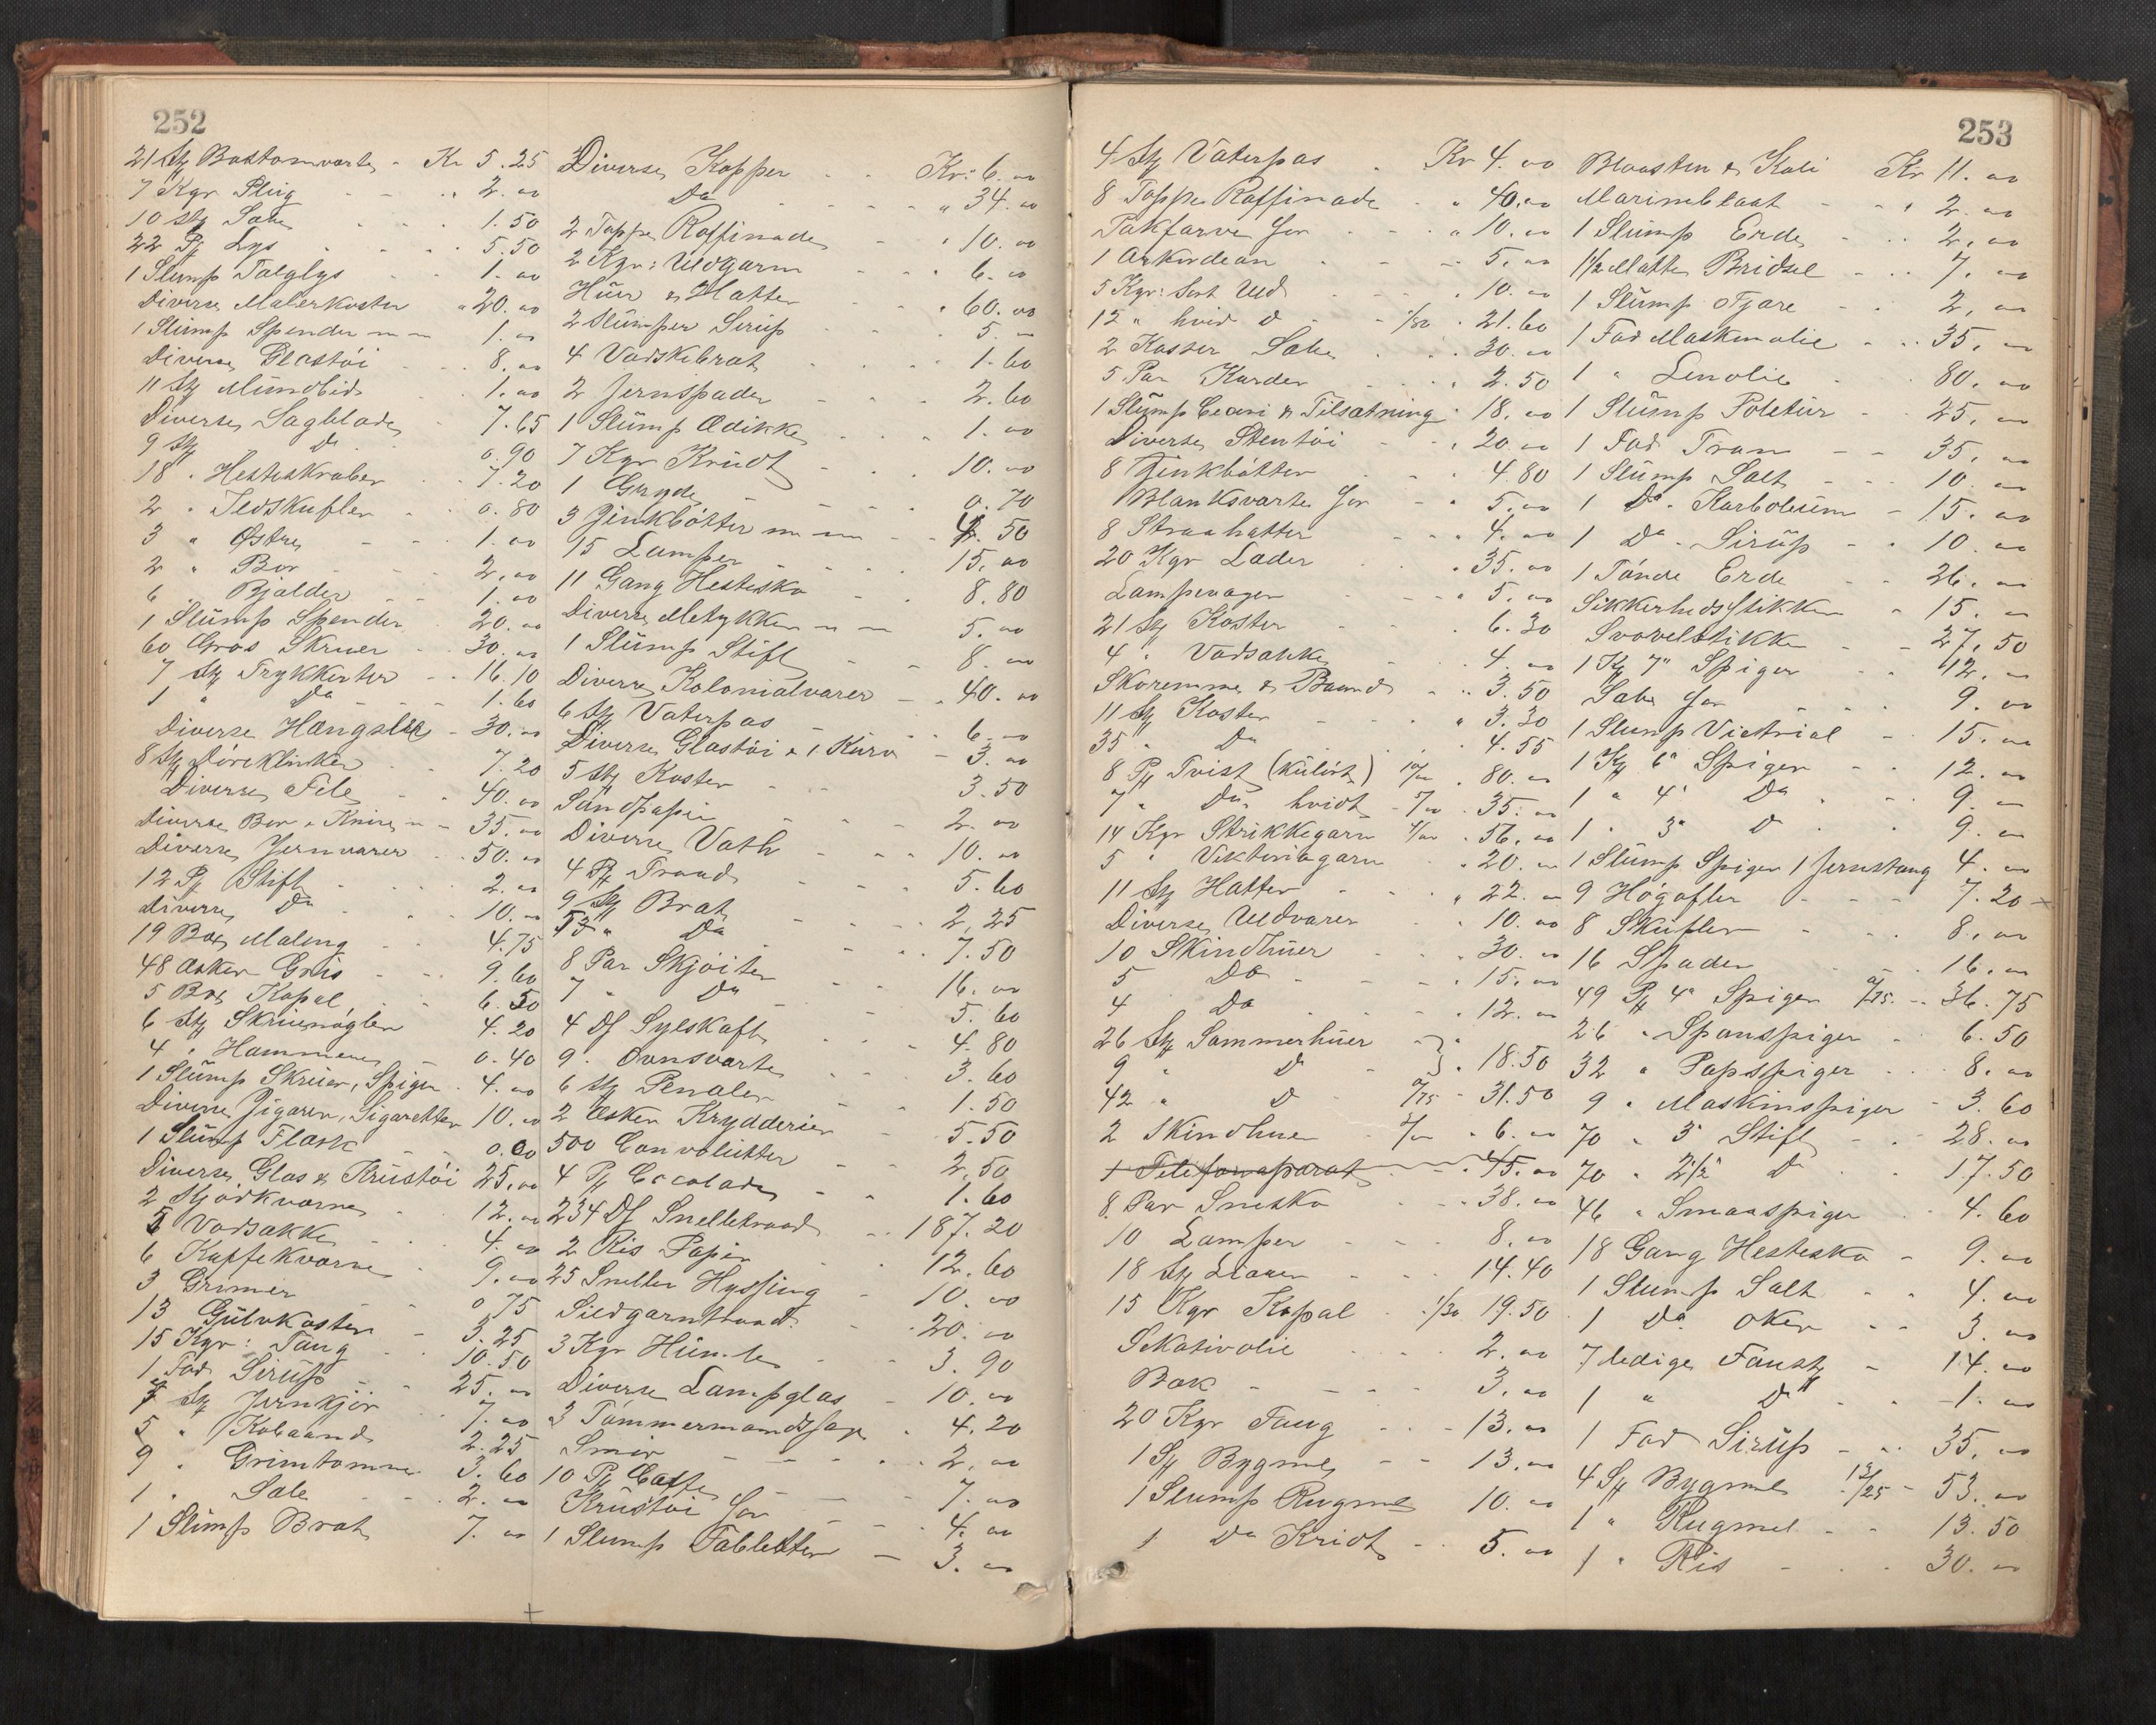 252
21 Stk Bottomvarte - Kr 5.25
7 Kgr Pling - - " 2.00
10 Stk Sæbe 1.50
22 Pk Lys 5.50
1 Slump Talglys 1.00
Diverse Malerkoster " 20.00
1 Slump Spender m m 1.00
Diverse Glastøi 8.00
11 Stk Mundbid 1.00
Diverse Sagblade 7.65
9 Stk Do 0.90
18 " Hesteskraber 7.20
2 " Ildskufler 0.80
3 " Østre 1.00
2 " Bor 2.00
6 " Bjælder 1.00
1 Slump Spender 20.00
60 Gros Skruer 30.00
7 Stk Trykkerter 16.10
1 " Do 1.60
Diverse Hængslee 30.00
8 Stk Dørklinker 7.20
Diverse File 40.00
Diverse Bor & Knive m m 35.00
Diverse Jernvarer 50.00
12 Pk Stift 2.00
Diverse Do 10.00
19 Box Maling 4.75
48 Æsker Grus 9.60
5 Box Kopal 6.50
6 Stk Skruenøgler 4.20
4 " Hammere 0.40
1 Slump Skruer, Spiger 4.00
Diverse Zigarer, Sigaretter 10.00
1 Slump Flæsk 0.00
Diverse Glas & Krustøi 25.00
2 Kjødkværne 12.00
5 Vadsække 4.00
6 Kaffekværne 9.00
3 Grimer 0.75
13 Gulvkoster 3.25
15 Kgr: Taug 10.50
1 Fad Sirup 25.00
7 Stk Jernkjør 7.00
5 " Kobaand 2.25
9 " Grimtomme 3.60
1 " Sale 2.00
1 Slump Bræt 7.00
Diverse Kopper - - Kr: 6.00
Do " 34.00
2 Toppe Raffinade " 10.00
2 Kgr: Uldgarn 6.00
Huer & Hatter " 60.00
2 Slumper Sirup 5.00
4 Vadskebræt 1.60
2 Jernspader 2.60
1 Slump Ædikke 1.00
7 Kgr Krudt 10.00
1 Gryde 0.70
3 Zinkbøtter m m 4.50
15 Lamper 15.00
11 Gang Hestesko 8.80
Diverse Metykker m m 5.00
1 Slump Stift 8.00
Diverse Kolonialvarer - " 40.00
6 Stk Vaterpas 6.00
Diverse Glastøi & 1 Kurv - 3.00
5 Stk Koster 3.50
Sandpapir 2.00
Diverse Vath 10.00
4 Pk Traad 5.60
9 Stk Bræt 2.25
53 " Do 7.50
8 Par Skjøiter 16.00
7 " Do 5.60
4 Ds Sylskaft 4.80
9 " Ovnsværte 3.60
6 Stk Penaler 1.50
2 Æsker Krydderier 5.50
500 Convolutter 2.50
4 Pk Cocolade 1.60
234 Ds Snelletraad 187.20
2 Ris Papir 12.60
25 Sneller Hyssing 10.00
Sildgarntraad 20.00
3 Kgr Humle 3.90
Diverse Lampglas 10.00
3 Tømmermandssage 4.20
Smør 2.00
10 Pk Caffe 7.00
Krustøi for 4.00
1 Slump Tabletter 3.00
253
4 Stk Vaterpas Kr 4.00
8 Toppe Raffinade " 40.00
Pakfarve for " 10.00
1 Arkordean 5.00
5 Kgr: Sort Uld 10.00
12 " hvid do 1/80 " 21.60
2 Kasser Sæbe 30.00
5 Par Karder 2.50
1 Slump Ceari & Tilsætning 18.00
Diverse Stentøi 20.00
8 Zinkbøtter 4.80
Blanksværte for 5.00
8 Straahatter 4.00
20 Kgr Læder 35.00
Lampevæger 5.00
21 Stk Koster 6.30
4 " Vadsække 4.00
Skoremme & Baand 3.50
11 Stk Koster " 3.30
35 " Do 4.55
8 Pk Tvist (Kulørt) 10/00 " 80.00
7 " Do hvidt 5/00 35.00
14 Kgr Strikkegarn 4/00 " 56.00
5 " Viktoriagarn " 20.00
11 Stk Hatter " 22.00
Diverse Uldvarer 10.00
10 Skindhuer 30.00
5 Do 15.00
4 Do 12.00
26 Stk Sommerhuer
9 " Do 18.50
42 " Do 0/75 - 31.50
2 Skindhuer 3/00 " 6.00
1 Telefonaparat 45.00
8 Par Snesko 38.00
10 Lamper 8.00
18 Stk Liaaer 14.40
15 Kgr Kopal 1/30 19.50
Sekativolie 2.00
Bæk 3.00
20 Kgr Taug 13.00
1 Sk Bygmel 13.00
1 Slump Rugmel 10.00
1 Do Kridt 5.00
Blaasten & Kali Kr 11.00
Marineblaat 2.00
1 Slump Erde 2.00
1 1/2 Matte Bridsel 7.00
1 Slump Tjære 2.00
1 Fad Maskinolie 35.00
1 " Linolie 80.00
1 Slump Poletur 25.00
1 Fad Tran 35.00
1 Slump Salt 10.00
1 Do Karboleum 15.00
1 Do Sirup 10.00
1 Tønde Erde 26.00
Sikkerhedsstikker 15.00
Svovelstikke 27.50
1 Kg 7" Spiger 12.00
Sæbe for 9.00
1 Slump Victrial 15.00
1 Kg 6" Spiger 12.00
1 " 4" Do 9.00
1 " 3" Do 9.00
1 Slump Spiger 1 Jernstang 4.00
9 Høgafler 7.20
8 Skufler 8.00
16 Spader 16.00
49 Pk 4" Spiger 0/75 - 36.75
26 " Spanspiger 6.50
32 " Papspiger 8.00
9 " Maskinspiger 3.60
70 " 3" Stift 28.00
70 " 2 1/2" Do 17.50
46 " Smaaspiger 4.60
18 Gang Hestesko 9.00
1 Slump Salt 4.00
1 Do Oker 3.00
7 ledige Faustk 14.00
1 " Do 1.00
1 Fad Sirup 35.00
4 Sk Bygmel 13/25 - 53.00
1 " Rugmel 13.50
1 " Ris 30.00